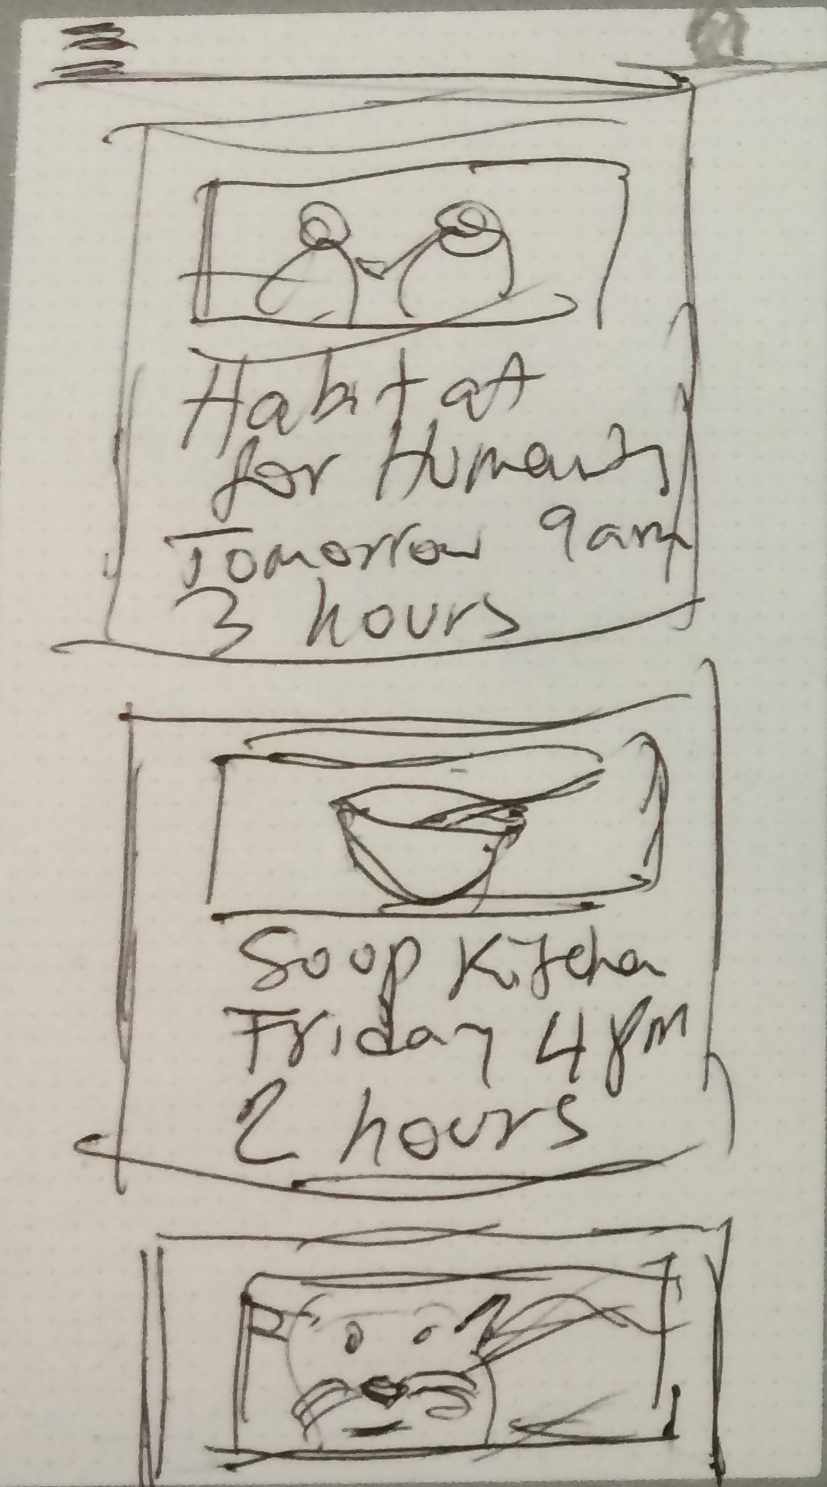 Habitat
for Humanity
Tomorrow 9am
3 hours
Soop Kitchen
Friday 4pm
2 hours